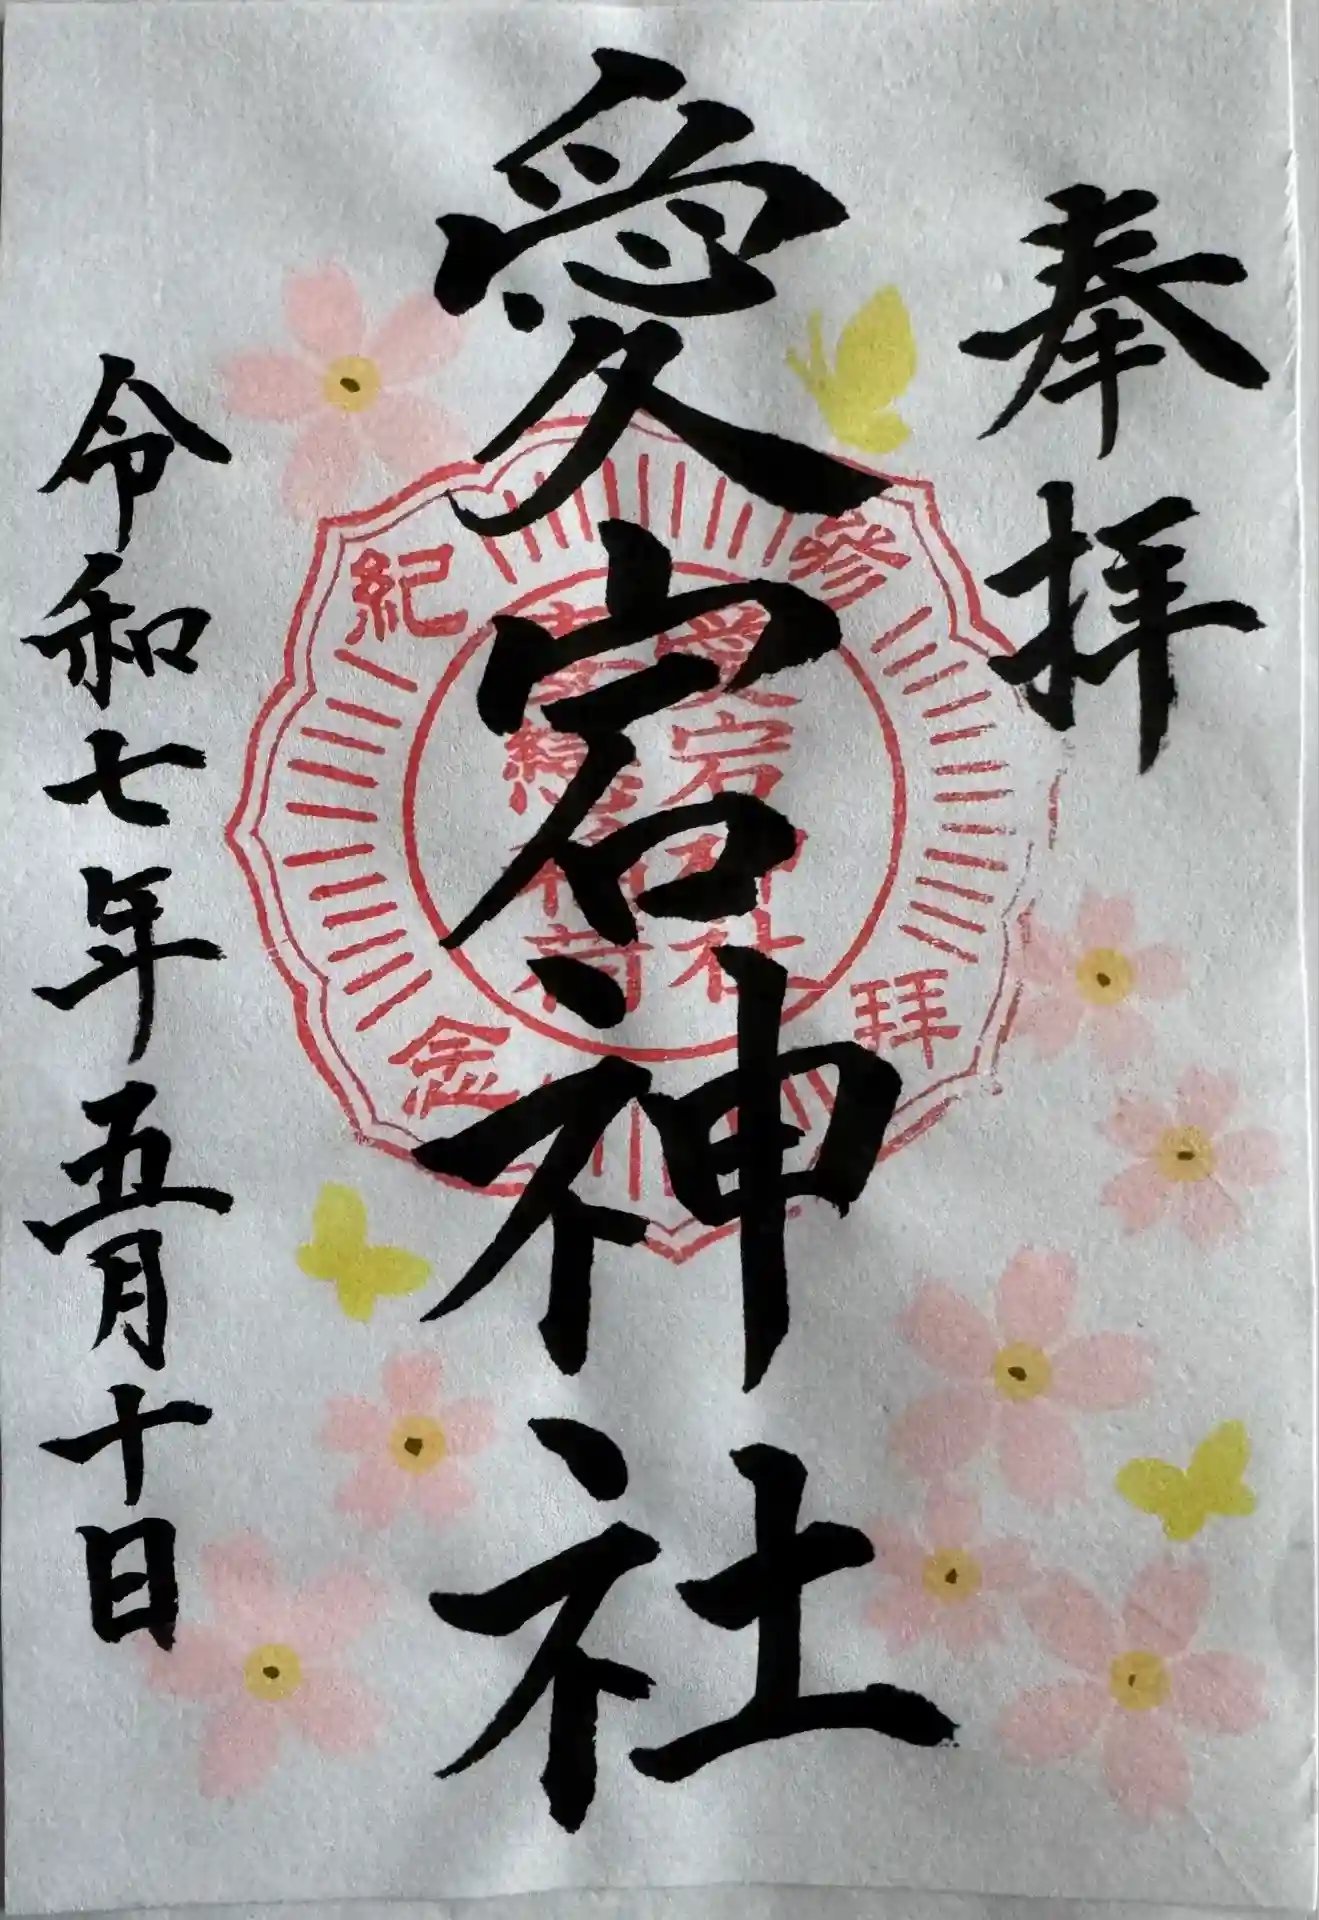 奉拝
愛宕神社
令和七年五月十日
參拜
紀念
愛宕神社
稲荷